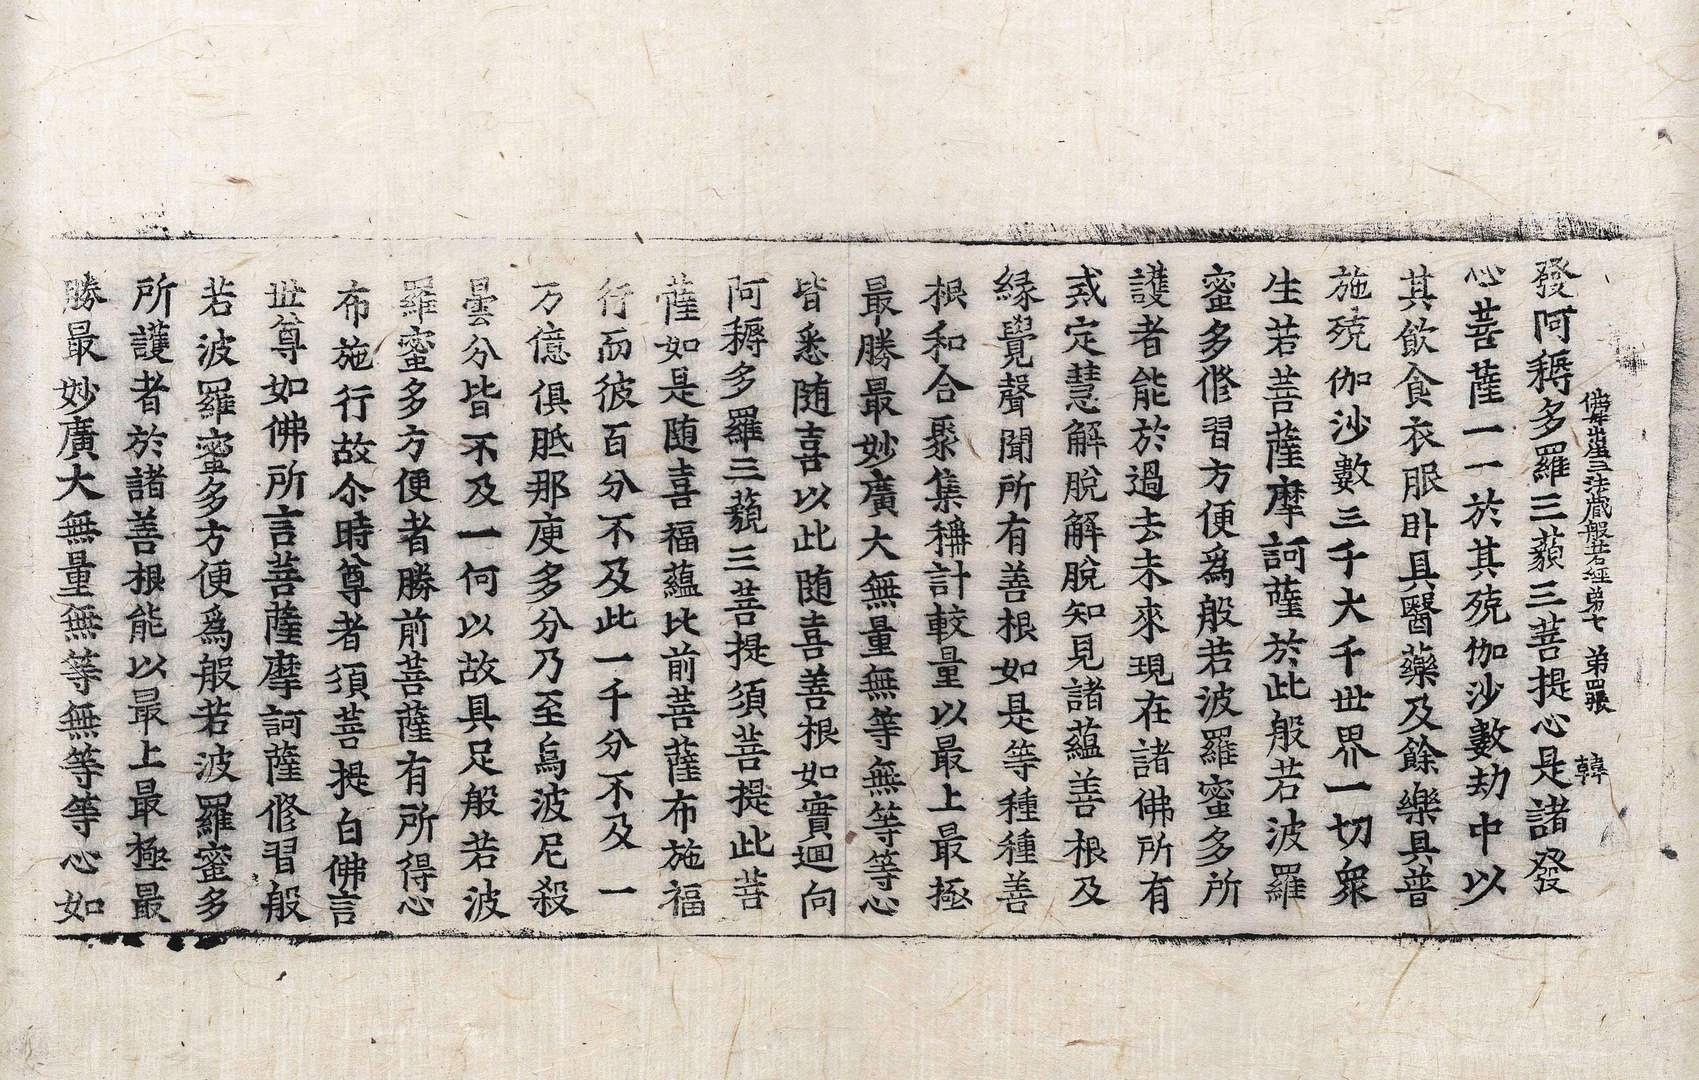 佛母出生三法藏般若經第七 第四張 韓
發阿耨多羅三藐三菩提心是諸發
心菩薩一一於其殑伽沙數劫中以
其飲食衣服卧具醫藥及餘樂具普
施殑伽沙數三千大千世界一切衆
生若菩薩摩訶薩於此般若波羅
蜜多修習方便爲般若波羅蜜多所
護者能於過去未來現在諸佛所有
戒定慧解脫解脫知見諸蘊善根及
緣覺聲聞所有善根如是等種種善
根和合聚集稱計較量以最上最極
最勝最妙廣大無量無等無等等心
皆悉随喜以此随喜善根如實迴向
阿耨多羅三藐三菩提須菩提此菩
薩如是随喜福蘊比前菩薩布施福
行而彼百分不及此一千分不及一
万億俱胝那庾多分乃至烏波尼殺
曇分皆不及一何以故具足般若波
羅蜜多方便者勝前菩薩有所得心
布施行故尒時尊者須菩提白佛言
世尊如佛所言菩薩摩訶薩修習般
若波羅蜜多方便爲般若波羅蜜多
所護者於諸善根能以最上最極最
勝最妙廣大無量無等無等等心如